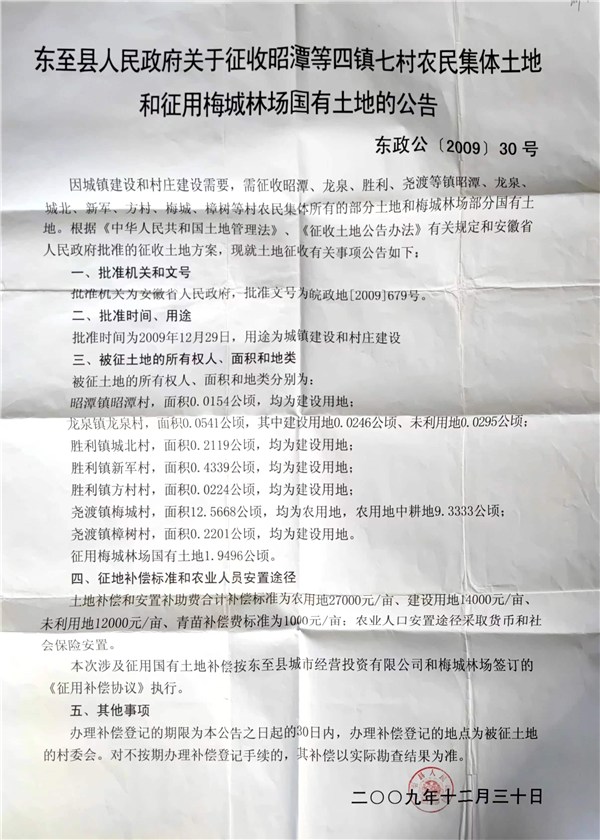 东至县人民政府关于征收昭潭等四镇七村农民集体土地
和征用梅城林场国有土地的公告
东政公〔2009〕30号
因城镇建设和村庄建设需要，需征收昭潭、龙泉、胜利、尧渡等镇昭潭、龙泉、
城北、新军、方村、梅城、樟树等村农民集体所有的部分土地和梅城林场部分国有土
地。根据《中华人民共和国土地管理法》、《征收土地公告办法》有关规定和安徽省
人民政府批准的征收土地方案，现就土地征收有关事项公告如下：
一、批准机关和文号
批准机关为安徽省人民政府，批准文号为皖政地[2009]679号。
二、批准时间、用途
批准时间为2009年12月29日，用途为城镇建设和村庄建设
三、被征土地的所有权人、面积和地类
被征土地的所有权人、面积和地类分别为：
昭潭镇昭潭村，面积0.0154公顷，均为建设用地；
龙泉镇龙泉村，面积0.0541公顷，其中建设用地0.0246公顷、未利用地0.0295公顷；
胜利镇城北村，面积0.2119公顷，均为建设用地；
胜利镇新军村，面积0.4339公顷，均为建设用地；
胜利镇方村村，面积0.0224公顷，均为建设用地；
尧渡镇梅城村，面积12.5668公顷，均为农用地，农用地中耕地9.3333公顷；
尧渡镇樟树村，面积0.2201公顷，均为建设用地。
征用梅城林场国有土地1.9496公顷。
四、征地补偿标准和农业人员安置途径
土地补偿和安置补助费合计补偿标准为农用地27000元/亩、建设用地14000元/亩、
未利用地12000元/亩、青苗补偿费标准为1000元/亩；农业人口安置途径采取货币和社
会保险安置。
本次涉及征用国有土地补偿按东至县城市经营投资有限公司和梅城林场签订的
《征用补偿协议》执行。
五、其他事项
办理补偿登记的期限为本公告之日起的30日内，办理补偿登记的地点为被征土地
的村委会。对不按期办理补偿登记手续的，其补偿以实际勘查结果为准。
二〇〇九年十二月三十日